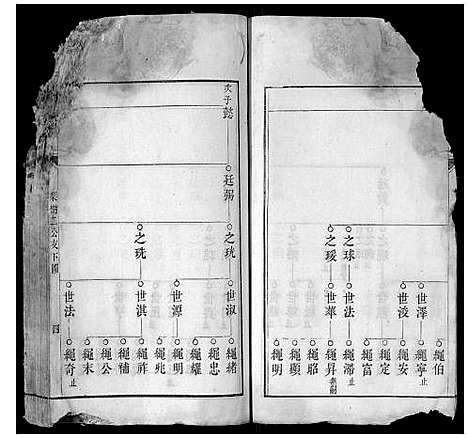 世澤
世淩
之球
之瑗
世法
世華
繩伯
繩寧 止
繩安
繩定
繩富
繩濟 止
繩昇
繩昭
繩顯
繩明
次子懿
廷弼
之珖
之珖
世淑
世源
世淇
世法
繩緒
繩忠
繩耀
繩明
繩兆
繩祚
繩補
繩公
繩末
繩奇 止
公支下圖
四